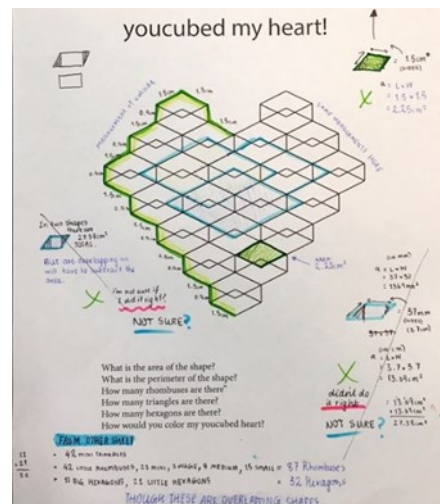 youcubed my heart!
= 1.5cm²
a = L×W
= 1.5 × 1.5
= 2.25cm²
MEASUREMENT OF OUTSIDE
SAME MEASUREMENTS HERE
1.5cm
1.5cm
1.5cm
In two shapes
TOTAL.
But are overlapping so
will have to subtract the
area.
I'm not sure if
I did it right?
NOT SURE?
AREA:
2.25cm²
(in mm)
a = L×W
= 37×37
= 1369mm²
= 37mm
(3.7cm)
37×37
(in cm)
a = L×W
= 3.7 × 3.7
= 13.69cm²
didn't do
it right
NOT SURE?
13.69cm²
+ 13.69cm²
27.38cm²
What is the area of the shape?
What is the perimeter of the shape?
How many rhombuses are there?
How many triangles are there?
How many hexagons are there?
How would you color my youcubed heart?
FROM OTHER SHEET
• 42 mini
• 42 LITTLE RHOMBUSES, 21 MINI, 9 MEDIUM, 15 SMALL = 87 Rhombuses
• 11 BIG HEXAGONS, 21 LITTLE HEXAGONS = 32 Hexagons
11
+ 21
32
THOUGH THESE ARE OVERLAPPING SHAPES